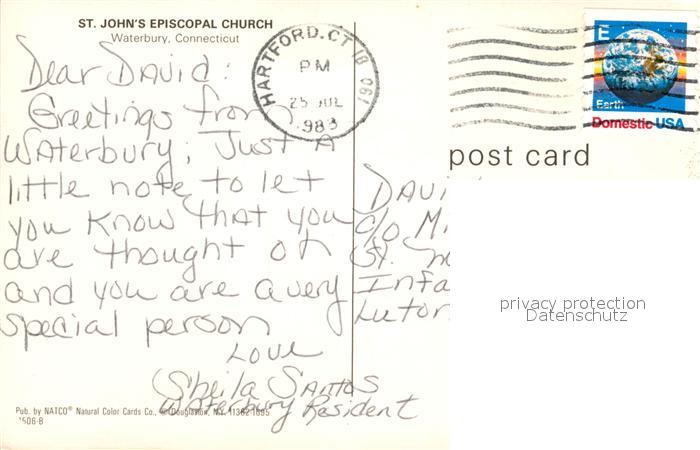 ST. JOHN'S EPISCOPAL CHURCH
Waterbury, Connecticut
Dear David:
Greetings from
Waterbury, Just a
little note to let
you know that you
are thought of
and you are a very
special person
Love
Sheila Santos
Waterbury Resident
Pub. by NATCO® Natural Color Cards Co., Douglaston, N.Y. 11362-1695
HARTFORD, CT
061
PM
25 JUL
E
Earth
Domestic USA
post card
Davi
c/o Mi
St.
Infa
Luton
privacy protection
Datenschutz